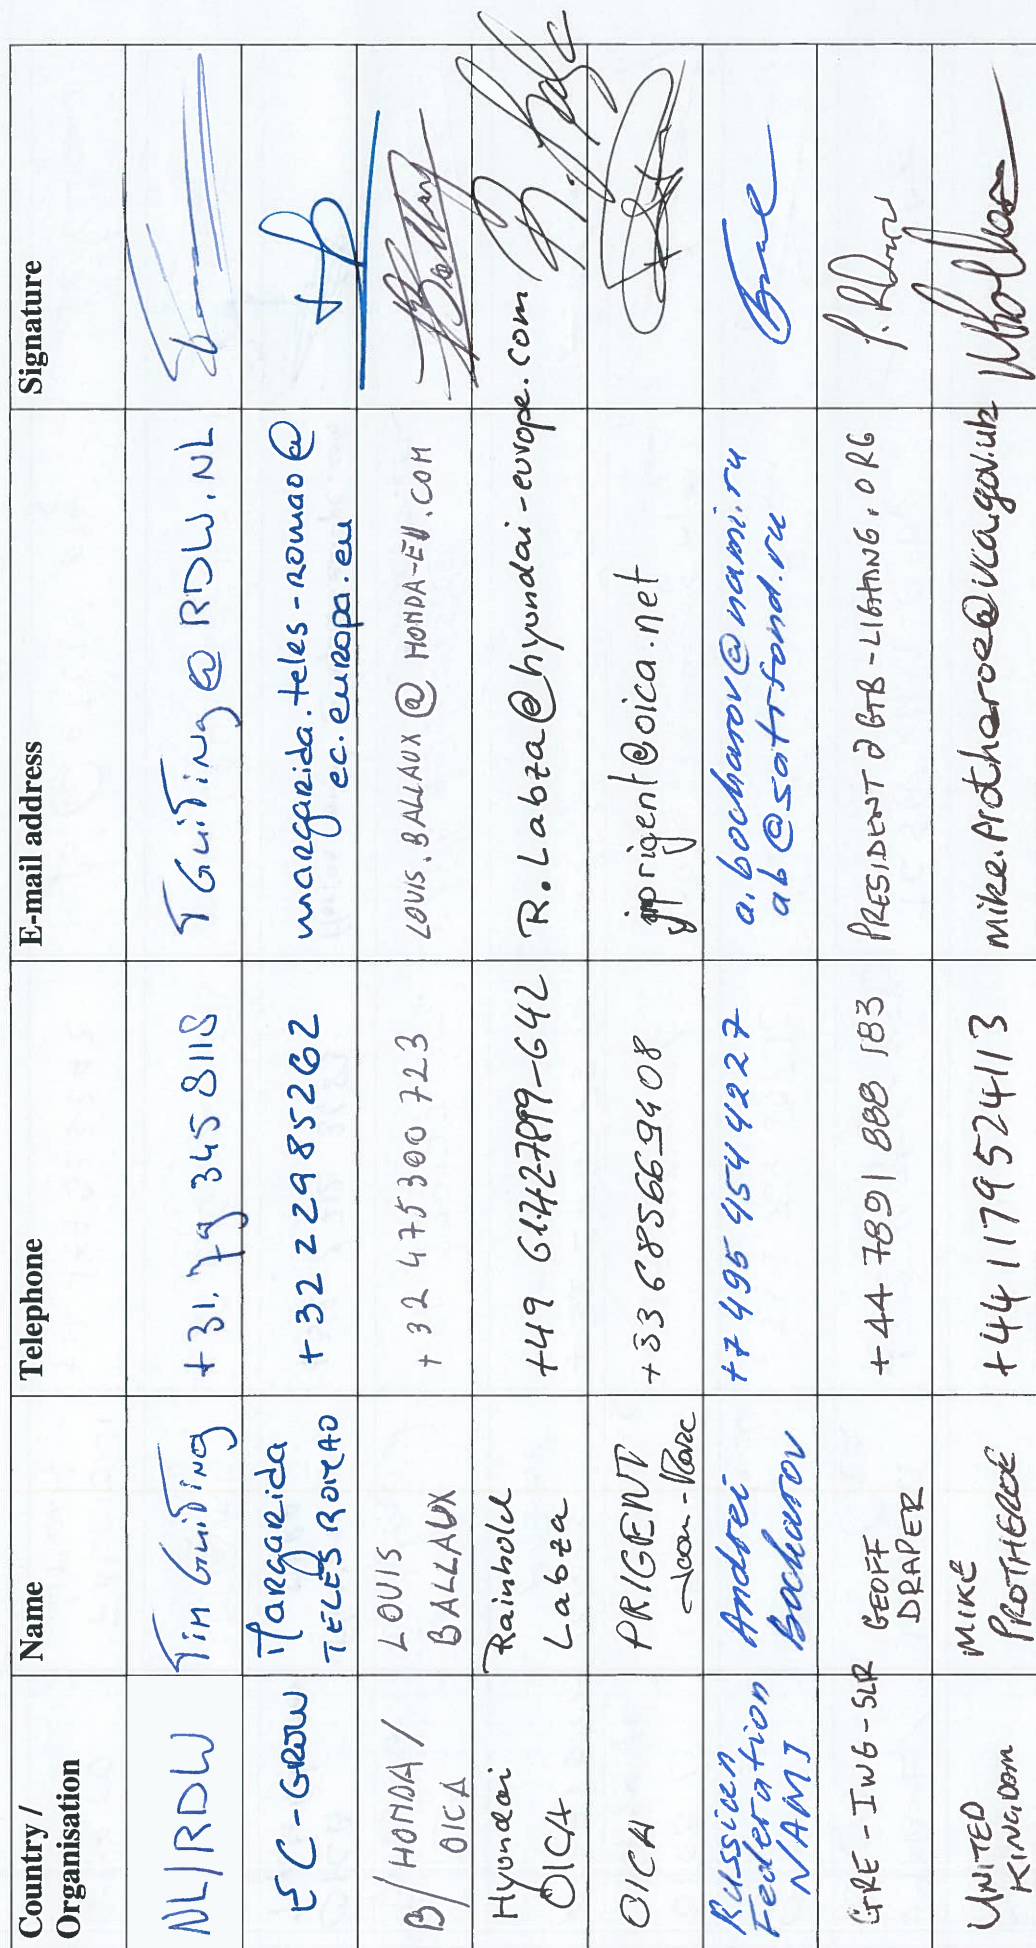 Country / Organisation
Name
Telephone
E-mail address
Signature
NL/RDW
Tim Guiting
+31.79 345 8118
TGuiTing@RDW.NL
EC-GROW
Margarida
TELES ROMAO
+32 2 2985262
margarida.teles-romao@
ec.europa.eu
B/HONDA/
OICA
LOUIS
BALLAUX
+32 475 300 723
LOUIS.BALLAUX@HONDA-EU.COM
Hyundai
OICA
Rainhold
Labza
+49
R.Labza@hyundai-europe.com
OICA
PRIGENT
Jean-Marc
+33 685669408
jmprigent@oica.net
Russian
Federation
NAMI
Andrei
Bocharov
+7 495 454 4227
a.bocharov@nami.ru
ab@satrfond.ru
GRE-IWG-SLR
GEOFF
DRAPER
+44 7891 888 183
PRESIDENT@GTB-LIGHTING.ORG
UNITED
KINGDOM
MIKE
PROTHEROE
+44 1179524113
mike.protheroe@vca.gov.uk